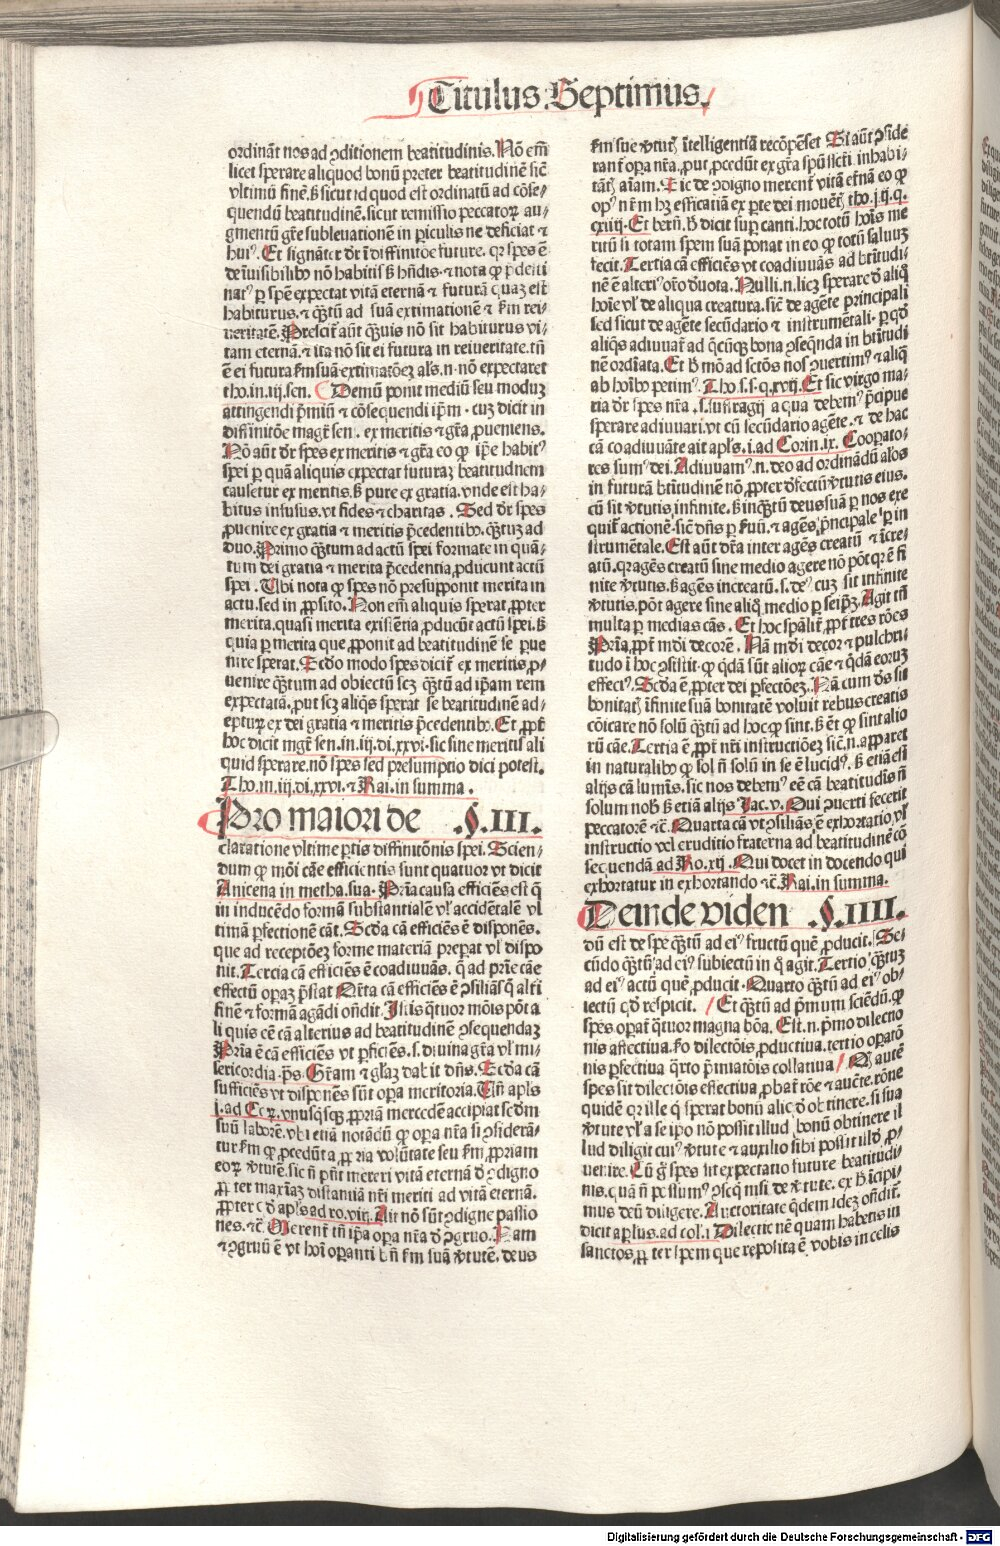 Titulus Septimus.
ordinãt nos ad ꝯditionem beatitudinis. Nõ em̃
licet sperare aliquod bonũ preter beatitudinẽ sic̃
vltimũ finẽ. ß sicut id quod est ordinatũ ad cõse/
quendũ beatitudinẽ. sicut remissio peccatoꝝ au/
gmentũ gr̃e subleuationẽ in periculis ne deficiat ⁊
huiꝰ. Et signãter dr̃ ĩ diffinitõe future. qꝛ spes ẽ
de ĩuisibilibꝰ nõ habitis ß hñdis. ⁊ nota ꝙ
natꝰ ꝑ spẽ expectat vitã eternã ⁊ futurã quaꝫ est
habiturus. ⁊ q̃ꝫtũ ad suã extimationẽ ⁊ ẜm rei
veritatẽ. Prescit aũt q̃uis nõ sit habiturus vi/
tam eternã. ⁊ ita nõ sit ei futura in rei veritate. tñ
ẽ ei futura ẜm suã extimatõeꝫ als̃. n. nõ expectaret
tho. in. iij. sen. Demũ ponit mediũ seu moduꝫ
attingendi p̃miũ ⁊ cõsequendi ip̃m. cuꝫ dicit in
diffinitõe magr̃ sen. ex meritis ⁊ gr̃a ꝓueniens.
Nõ aũt dr̃ spes ex meritis ⁊ gr̃a eo ꝙ ip̃e habitꝰ
spei ꝑ quã aliquis expectat futuraꝫ beatitudinem
causetur ex meritis. ß pure ex gratia. vnde est ha/
bitus infusus. vt fides ⁊ charitas. Sed dr̃ spes
ꝓuenire ex gratia ⁊ meritis p̃cedentibꝰ. q̃ꝫtuꝫ ad
duo. Primo q̃ꝫtum ad actũ spei formate in quã/
tum dei gratia ⁊ merita p̃cedentia ꝓducunt actũ
spei. Vbi nota ꝙ spes nõ presupponit merita in
actu. sed in ꝓposito. Non em̃ aliquis sperat ꝓpter
merita. quasi merita existẽtia ꝓducũt actũ spei. ß
quia ꝑ merita que ꝓponit ad beatitudinẽ se ꝑue
nire sperat. Scd̃o modo spes dicit̃ ex meritis ꝓ/
uenire q̃ꝫtum ad obiectũ scꝫ q̃ꝫtũ ad ip̃am rem
expectatã. put scꝫ aliq̃s sperat se beatitudinẽ ad/
epturꝫ ex dei gratia ⁊ meritis p̃cedentibꝰ. Et ꝓpt̃
hoc dicit mgr̃ sen. in. iij. di. xxvi. sic sine meritis ali
quid sperare. nõ spes sed presumptio dici potest.
Tho. in. iij. di. xxvi. ⁊ Rai. in summa.
Pro maiori de .§. III.
claratione vltime ꝑtis diffinitiõnis spei. Scien/
dum ꝙ mõi cãe efficientis sunt quatuor vt dicit
Auicena in metha. sua. Pria causa efficiẽs est q̃
in inducẽdo formã substantialẽ vl̓ accidẽtalẽ vl̓
timã ꝑfectionẽ cãt. Scd̃a cã efficiẽs ẽ disponẽs.
que ad receptõeꝫ forme materiã preparat vl̓ dispo
nit. Tercia cã efficiẽs ẽ coadiuuãs. q̃ ad prĩe cãe
effectũ operaꝫ p̃stat Qr̃ta cã efficiẽs ẽ ꝯsiliãs q̃ alti
finẽ ⁊ formã agẽdi oñdit. Istis q̃tuor mõis põt a
li quis eẽ cã alterius ad beatitudinẽ ꝯsequendaꝫ
Pria ẽ cã efficiẽs vt ꝑficiẽs. s. diuina gr̃a vl̓ mi/
sericordia. ps̃. Gr̃am ⁊ gl̓aꝫ dabit dñs. Scd̃a cã
sufficiẽs vt disponẽs sũt opera meritoria. Vñ apl̓s
i. ad Cor. vnusq̃sqꝫ ꝓpriam mercedẽ accipiat scd̃m
suũ laborẽ. vbi etiã notãdũ ꝙ oꝑa nr̃a si ꝯsiderã/
tur ẜm ꝙ ꝓcedũt a ꝓpria volũtate seu ẜm ꝓpriam
eoꝝ v̓tutẽ. sic ñ pñt mereri vitã eternã d̓ ꝯdigno
ꝓpter maximaꝫ distantiã nr̃i meriti ad vitã eternã.
ꝓpter qd̓ apl̓s ad ro. viij. Ait nõ sũt ꝯdigne passio
nes. ⁊c̃. Merent̃ tñ ip̃a oꝑa nr̃a d̓ ꝯgruo. Nam
⁊ ꝯgruũ ẽ vt hoĩ oꝑanti bñ ẜm suã v̓tutẽ. deus
ẜm sue v̓tutꝭ ĩtelligentiã recõpẽset Si aũt ꝯside
rant̃ oꝑa nr̃a. put ꝓcedũt ex gr̃a spũssc̃ti inhabi/
tãtꝭ aĩam. Sic de ꝯdigno merent̃ vitã et̃nã eo ꝙ
opꝰ nr̃m hꝫ efficatiã ex ꝑte dei mouẽtꝭ tho. j. ij. q.
cxiiij. Et bern̄. ß dicit sup̃ canti. hoc totũ hoĩs me
ritũ si totam spem suã ponat in eo ꝙ totũ saluuꝫ
fecit. Tertia cã efficiẽs vt coadiuuãs ad btĩtudi/
nẽ ẽ alteriꝰ or̃o d̓uota. Nulli. n. licꝫ sperare d̓ aliq̃
hoĩe vl̓ de aliqua creatura. sic̃ de agẽte principali
sed sicut de agẽte secũdario ⁊ instrumẽtali. ꝑ qd̓
aliq̃s adiuuat̃ ad q̃cũqꝫ bona ꝯseq̃nda in btĩtudi
nẽ ordĩata. Et ß mõ ad sctõs nos ꝯuertimꝰ ⁊ aliq̃
ab hoĩbꝰ petimꝰ. Tho. s. s. q. xvij. Et sic virgo ma/
ria dr̃ spes nr̃a. s. suffragij a qua debemꝰ p̃cipue
sperare adiuuari. vt cũ secũdario agẽte. ⁊ de hac
cã coadiuuãte ait apl̓s. i. ad Corin. ix. Coopato/
res sumꝰ dei. Adiuuamꝰ. n. deo ad ordinãdũ alios
in futurã btĩtudinẽ nõ ꝓpter d̓fectũ v̓tutis eius.
cũ sit v̓tutis infinite. ß inq̃ꝫtũ deus suã ꝑ nos exe
quit̃ actionẽ. sic̃ dñs ꝑ ẜuũ. ⁊ agẽs p̃ncipale ꝑ in
strumẽtale. Est aũt dr̃a inter agẽs creatũ ⁊ ĩcre/
atũ. qꝛ agẽs creatũ sine medio agere nõ põt qꝛ ẽ fi
nite v̓tutis. ß agẽs increatũ. s. deꝰ cuꝫ sit infinite
v̓tutis. põt agere sine aliq̃ medio ꝑ seip̃ꝫ. Agit tñ
multa ꝑ medias cãs. Et hoc sp̃alit̃ ꝓpt̃ tres rões
Pria. ꝓpt̃ mũdi decorẽ. Nã mũdi decor ⁊ pulchri/
tudo ĩ hoc ꝯsistit. ꝙ q̃dã sũt alioꝝ cãe ⁊ q̃dã eoruꝫ
effectꝰ. Scd̃a ẽ. ꝓpter dei ꝑfectõeꝫ. Nã cum d̓s sit
bonitatꝭ ĩfinite suã bonitatẽ voluit rebus creatis
cõicare nõ solũ q̃ꝫtũ ad hoc ꝙ sint. ß ẽt ꝙ sint alio
rũ cãe. Tertia ẽ ꝓpt̃ nr̃i instructiõeꝫ sic̃. n. apparet
in naturalibꝰ ꝙ sol ñ solũ in se ẽ lucidꝰ. ß etiã est
alijs cã lumĩs. sic nos debemꝰ eẽ cã beatitudĩs ñ
solum nob̃ ß etiã alijs Jac. v. Qui ꝯuerti fecerit
peccatorẽ ⁊c̃. Quarta cã vt ꝯsiliãs ẽ exhortatio vl̓
instructio vel eruditio fraterna ad beatitudinẽ cõ
sequendã ad Ro. xij. Qui docet in docendo qui
exhortatur in exhortando ⁊c̃. Rai. in summa.
Deinde viden .§. IIII.
dũ est de spe q̃ꝫtũ ad eiꝰ fructũ quẽ ꝓducit. Se/
cũdo q̃ꝫtũ ad eiꝰ subiectũ in q̃ agit. Tertio q̃ꝫtuꝫ
ad eiꝰ actũ quẽ ꝓducit. Quarto q̃ꝫtũ ad eiꝰ ob/
iectũ qd̓ respicit. Et q̃ꝫtũ ad p̃mum sciẽdũ. ꝙ
spes oꝑat̃ q̃tuor magna bõa. Est. n. p̃mo dilectio
nis affectiua. ẜo dilectõis ꝓductiua. tertio oꝑatõ
nis ꝑfectiua q̃rto p̃miatõis collatiua. Qd̓ autẽ
spes sit dilectiõis effectiua ꝓbat̃ rõe ⁊ auctẽ. rõne
quidẽ qꝛ ille q̃ sperat bonũ aliqd̓ obtinere. si sua
v̓tute vl̓ a se ipo nõ possit illud bonũ obtinere il
lud diligit cuiꝰ v̓tute ⁊ auxilio sibi possit illd̓ ꝓ/
uenire. Cũ g̃ spes sit expectatio future beatitudi/
nis. quã ñ possumꝰ ꝯseq̃ nisi de v̓tute. ex ß ĩcipi/
mus deũ diligere. Auctoritate q̃dem idẽꝫ oñdit̃.
dicit aplus. ad col. i Dilectionẽ quam habetis in
sanctos ꝓpter spem que reposita ẽ vobis in celis
Digitalisierung gefördert durch die Deutsche Forschungsgemeinschaft - DFG